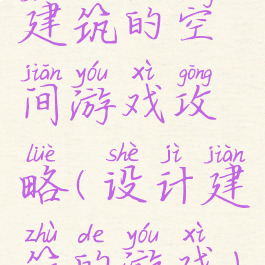 建筑的空
jiān yóu xì gōng
间游戏攻
lüè shè jì jiàn
略(设计建
zhù de yóu xì
筑的游戏)